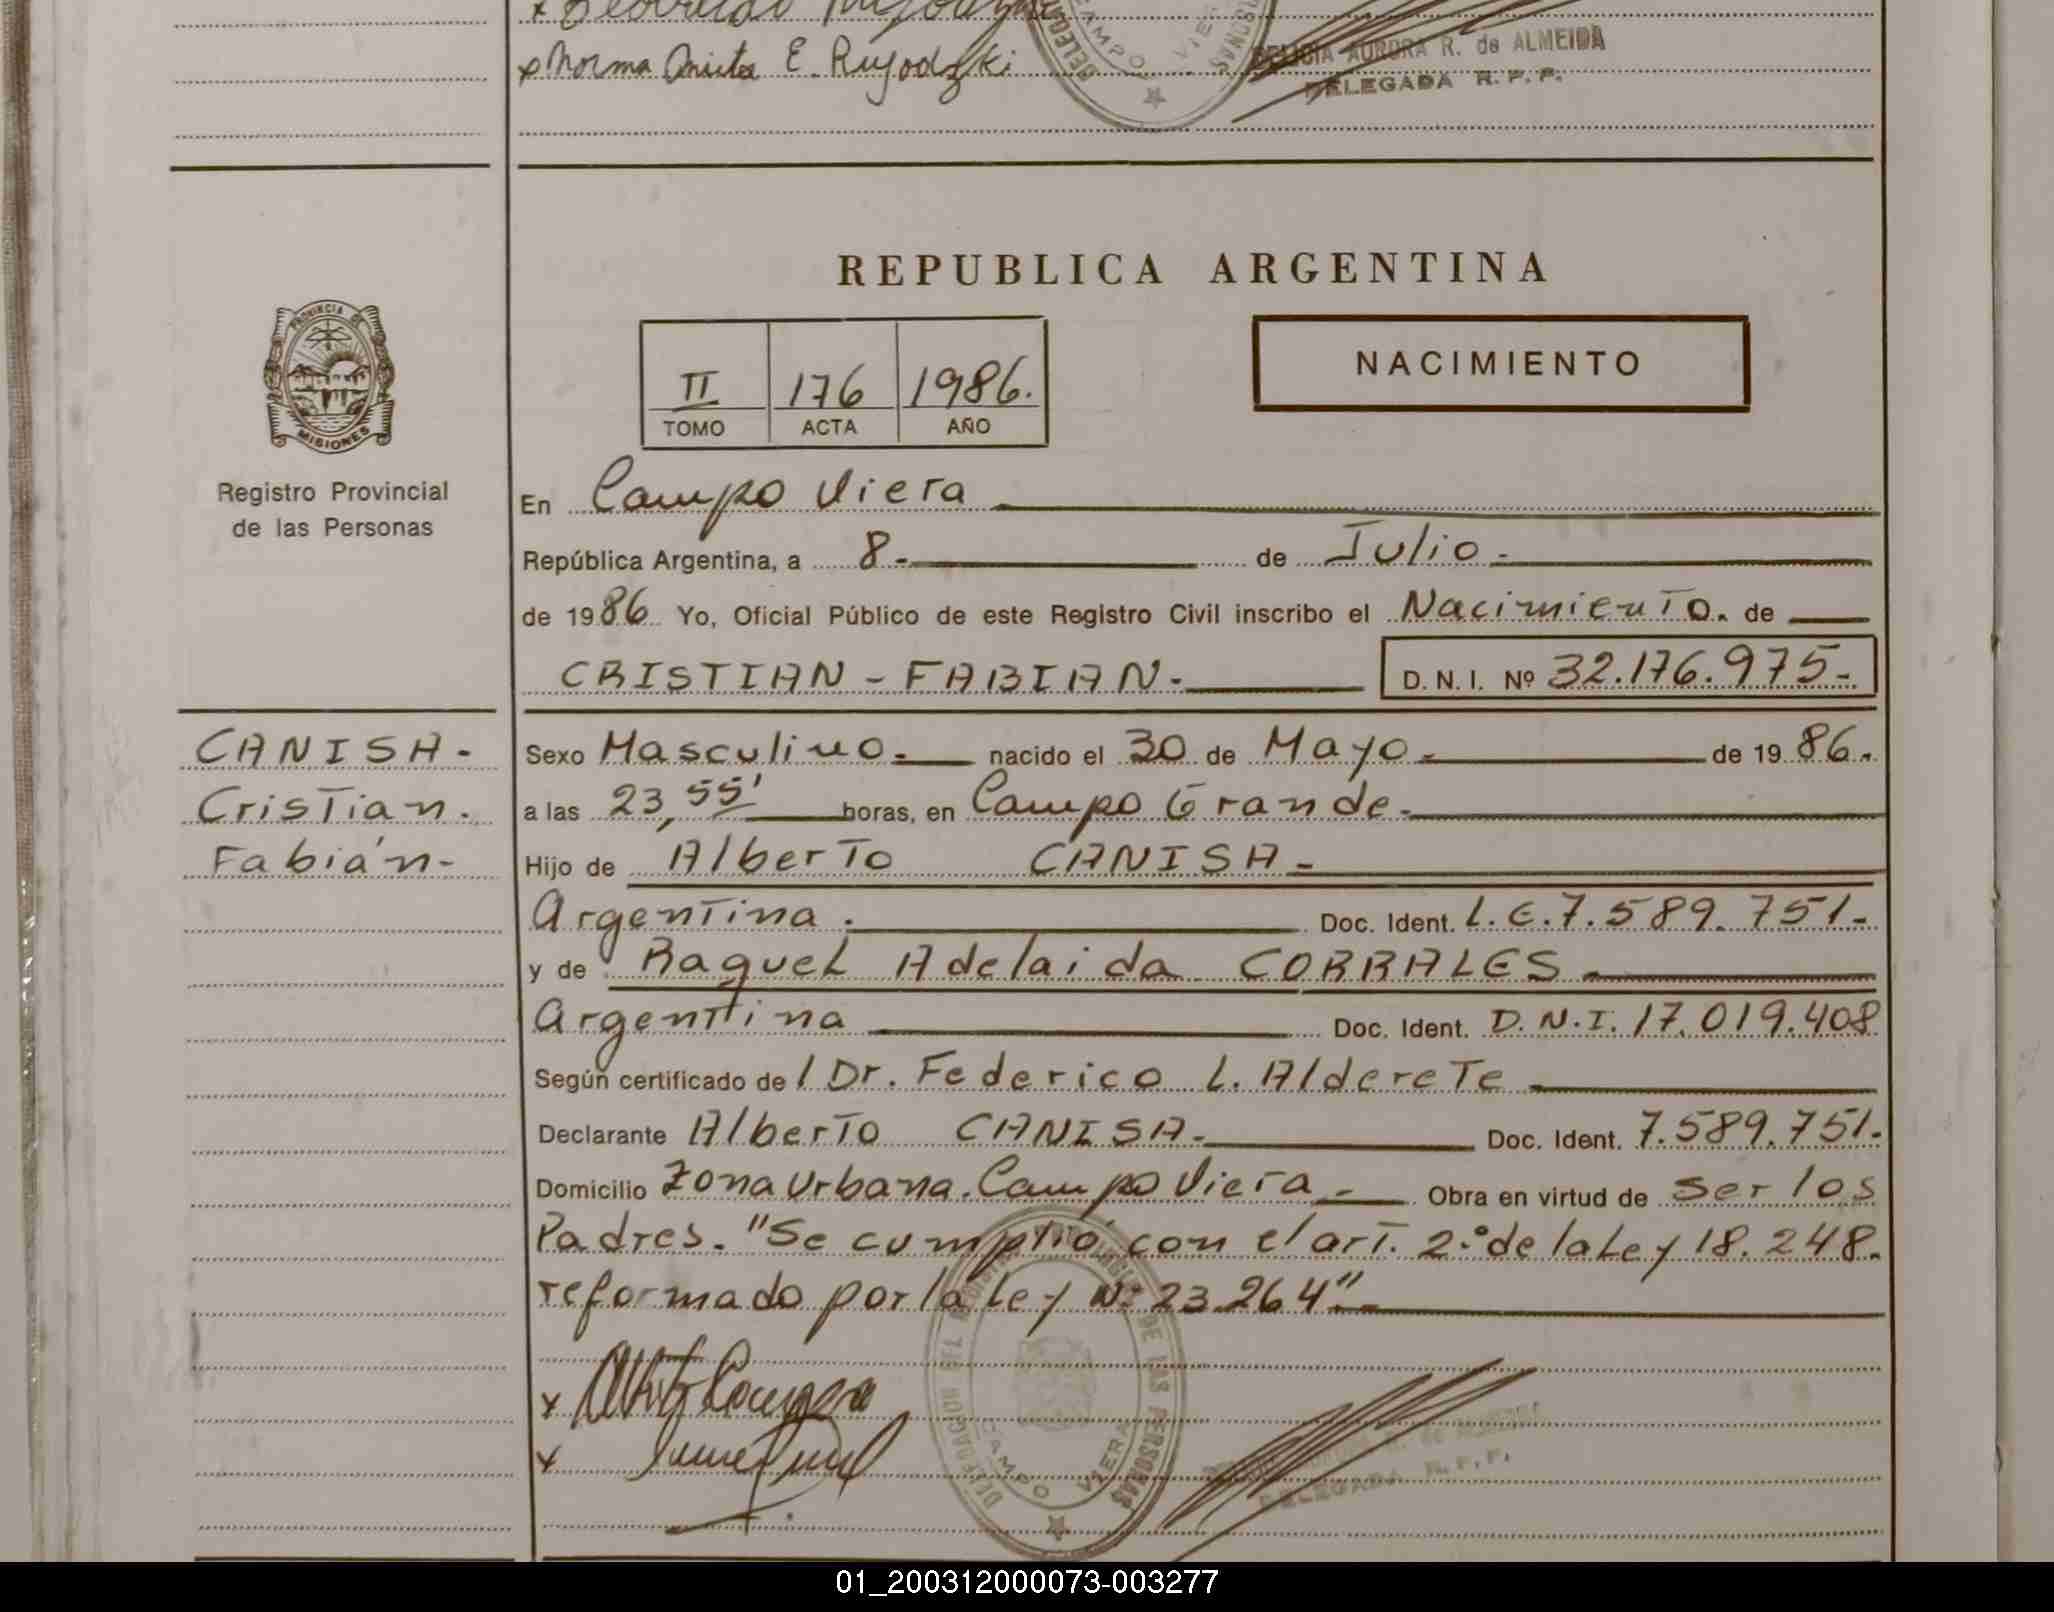 x Norma Anita E. Rujodzki
DELICIA AURORA R. de ALMEIDA
DELEGADA R. P. P.
CAMPO VIERA
REPUBLICA ARGENTINA
PROVINCIA DE
MISIONES
Registro Provincial
de las Personas
II 176 1986.
TOMO ACTA AÑO
NACIMIENTO
En Campo Viera
República Argentina, a 8.- de Julio.-
de 1986 Yo, Oficial Público de este Registro Civil inscribo el Nacimiento. de
CRISTIAN - FABIAN.- D. N. I. Nº 32.176.975-
CANISA-
Cristian.
Fabián-
Sexo Masculino.- nacido el 30 de Mayo.- de 1986.
a las 23,55' horas, en Campo Grande.-
Hijo de Alberto CANISA-
Argentina. Doc. Ident. L.E.7.589.751-
y de Raquel Adelaida CORRALES-
Argentina Doc. Ident. D.N.I. 17.019.408
Según certificado de l Dr. Federico L. Alderete
Declarante Alberto CANISA- Doc. Ident. 7.589.751.
Domicilio Zona Urbana. Campo Viera.- Obra en virtud de ser los
Padres. "Se cumplió con el art. 2.º de la Ley 18.248.
reformado por la Ley Nº 23.264".-
x
x
DELEGACION DEL REGISTRO PROV. DE LAS PERSONAS
CAMPO VIERA
DELEGADA R. P. P.
01_200312000073-003277